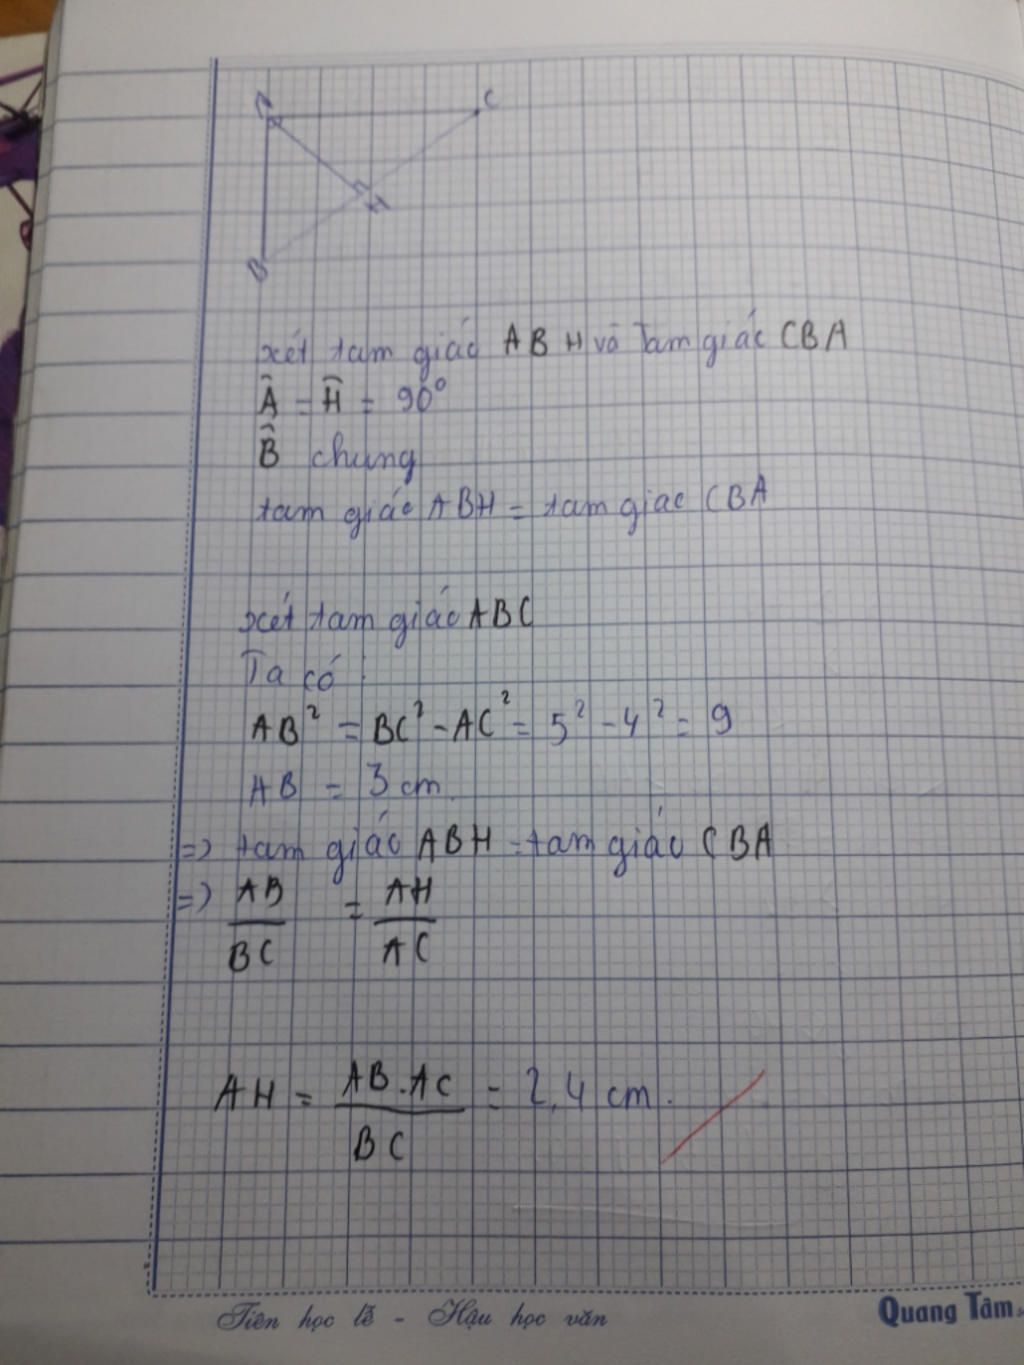 A
C
H
B
xét tam giác ABH và Tam giác CBA
Â = Ĥ = 90°
B̂ chung
tam giác ABH = tam giac CBA
xét tam giác ABC
Ta có :
AB² = BC² - AC² = 5² - 4² = 9
AB = 3 cm.
=> tam giác ABH = tam giác CBA
=> AB/BC = AH/AC
AH = AB.AC/BC = 2,4 cm.
Tiên học lễ - Hậu học văn
Quang Tâm